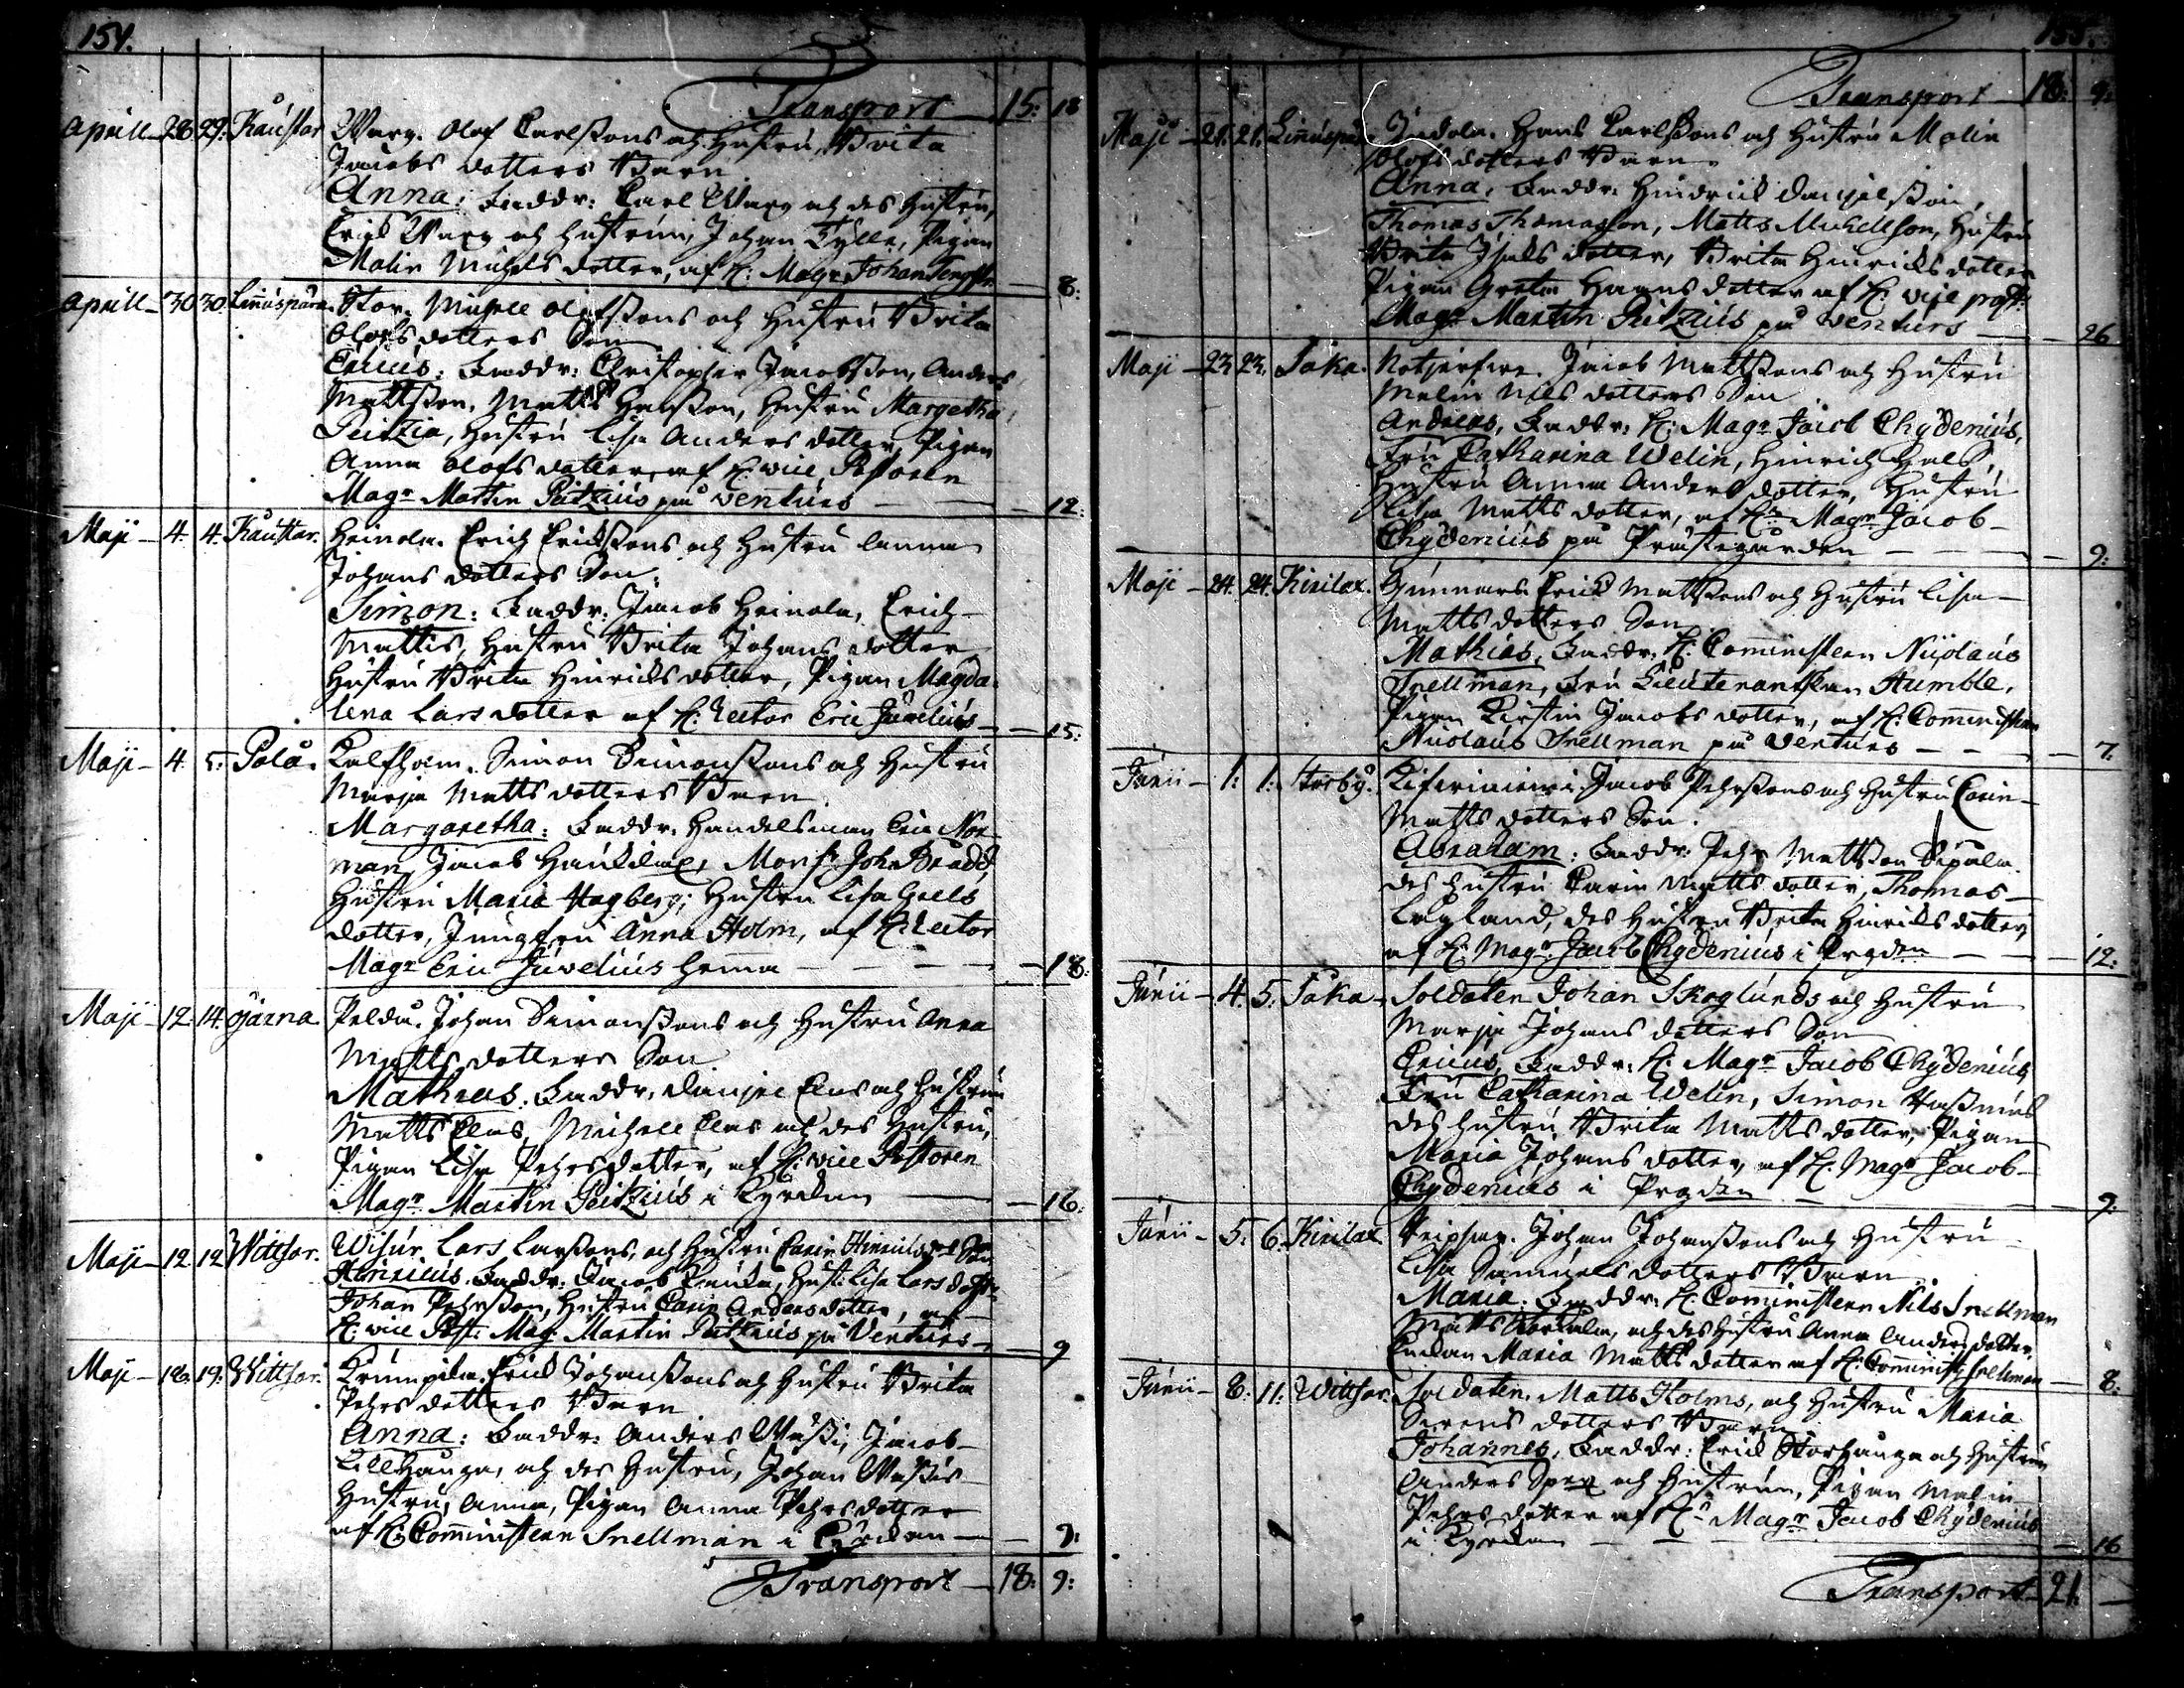 154.
Transport 15: 18
Aprill 28 29. Kaústar Warg. Olof Carlssons och Hustru Brita
Jacobs dotters Barn
Anna: Faddr: Carl Warg och des Hustru,
Erick Warg och hustrun, Johan Kylle, Pigan
Malin Michels dotter, af H: Magr Johan 8:
Aprill 30 30 Linnuspära. Stor. Michell Olofssons och Hustru Brita
Olofs dotters Son
Ericus: Faddr: Christopher Jacobsson, Anders
Mattsson, Matts, Hustru Margetha
Peitzia, Hustru Lisa Anders dotter, Pigan
Anna Olofs dotter, af H: vice Pastoren
Magr Martin Peitzius på Ventúes 12:
Maji 4. 4. Kaustar. Heinola. Erich Ericssons och Hustru Anna
Johans dotters Son.
Simon: Faddr: Jacob Heinola, Erich
Mattis, Hustru Brita Johans dotter
Hustru Brita Hinrics dotter, Pigan Magda-
lena Lars dotter af H: Rector Eric Juvelius 15:
Maji 4. 5. Palå. Kalfholm. Simon Simonssons och Hustru
Marja Matts dotters Barn
Margaretha: Faddr: Handelsman Eric Nor-
man, Jacob, Monsr Joh: Bradd,
Hustru Maria Hagberg, Hustru Lisa
dotter, Jungfru Anna Holm, af H: Rector
Magr Eric Juvelius hema 18:
Maji 12. 14. Öjärna. Palda. Johan Simonssons och Hustru Anna
Matts dotters Son
Mathias. Faddr. Danjel Clas och Hustrun
Matts Clas, Michell Clas och des Hustru,
Pigan Lisa Pehrs dotter, af H: vice Pastoren
Magr. Martin Peitzius i Kyrckan 16:
Maji 12 12 Wittsar. Wisur Lars Larssons, och Hustru Carin Hinrics dr Son
Henricus. Faddr: Jacob, Hust: Lisa Lars dotter
Johan Pehrsson, Hustru Carin Anders dotter, af
H: vice Past: Mag: Martin Peitzius på Ventúes 9
Maji 18. 19: Wittsar. Krumpila. Erick Johanssons och Hustru Brita
Pehrs dotters Barn
Anna: Faddr: Anders Wassi, Jacob
Lillhauga, och des Hustru, Johan Wassis
Hustru, Anna, Pigan Anna Pehrs dotter
af H: Comministern Snellman i Kyrckan 9:
Transport 18: 9:
155.
Transport 18: 9:
Maji 21. 21. Linnuspär. Indola. Hans Carlssons och Hustru Malin
Olofs dotters Barn
Anna, Faddr: Hindrick Danjelsson,
Thomas Thomasson, Matts Michellson, Hustru
Brita Isacs dotter, Brita Hinrics dotter
Pigan Greta Hans dotter af H: vice past:
Magr Martin Peitzius på Ventúes 26
Maji 23 23. Såka. Jacob Mattssons och Hustru
Malin Nils dotters Son
Andreas, Faddr: H: Magr Jacob Chydenius,
Fru Catharina Welin, Hinrich
Hustru Anna Anders dotter, Hustru
Lisa Matts dotter, af Hr Magr Jacob
Chydenius på Prästegården 9:
Maji 24. 24. Kirilax. Gunnars. Erick Mattssons och Hustru Lisa
Matts dotters Son
Mathias, Faddr: H: Comministern Nicolaus
Snellman, Fru Lieutenantskan Humble,
Pigan Kirstin Jacobs dotter, af H: Comministern
Nicolaus Snellman på Ventúes 7.
Junii 1: 1: Storby. Jacob Pehrssons och Hustru Carin
Matts dotters Son.
Abraham: Faddr: Pehr Mattsson
des Hustru Carin Matts dotter, Thomas
Lagland, des Hustru Brita Hinrics dotter,
af H: Magr. Jacob Chydenius i Prgden 12:
Junii 4. 5. Såka Soldaten Johan Skoglunds och Hustru
Marja Johans dotters Son
Ericus, Faddr: H: Magr Jacob Chydenius,
Fru Catharina Welin, Simon
des Hustru Brita Matts dotter, Pigan
Maria Johans dotter, af H: Magr Jacob
Chydenius i Prgden 9:
Junii 5. 6. Kirilax. Johan Johanssons och Hustru
Lisa Samuels dotters Barn
Maria. Faddr: H: Comministern Nils Snellman
Matts, och des Hustru Anna Anders dotter,
Enckan Maria Matts dotter af H: Comminist: Snellman 8:
Junii 8. 11. Wittsar. Soldaten. Matts Holms, och Hustru Maria
Sirens dotters Barn
Johannes, Faddr: Erick Storhauga och Hustrun
Anders och Hustrun, Pigan Malin
Pehrs dotter af Hr Magr Jacob Chydenius
i Kyrckan 16
Transport 21.